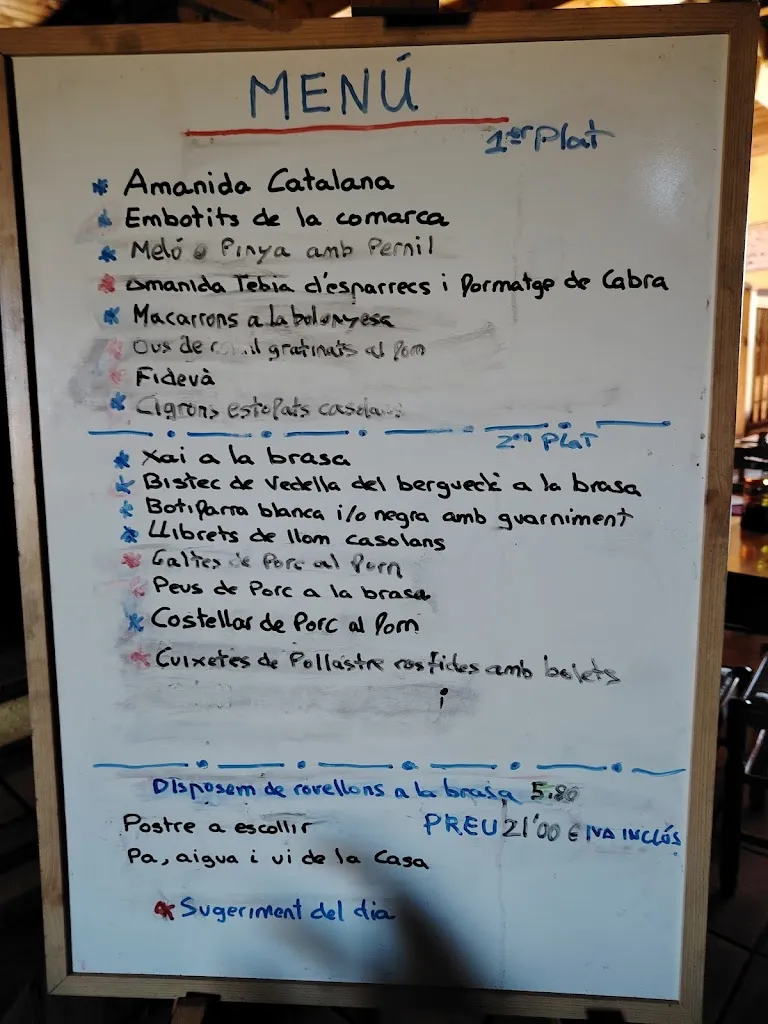 MENÚ
1er Plat
* Amanida Catalana
* Embotits de la comarca
* Meló o Pinya amb Pernil
* Amanida Tebia d'esparrecs i Formatge de Cabra
* Macarrons a la bolonyesa
* Ous de gratinats al Forn
* Fidevà
* Cigrons estofats casolans
2on Plat
* Xai a la brasa
* Bistec de Vedella del berguedà a la brasa
* Botifarra blanca i/o negra amb guarniment
* Llibrets de llom casolans
* Galtes de Porc al Forn
* Peus de Porc a la brasa
* Costellar de Porc al Forn
* Cuixetes de Pollastre rostides amb bolets
i
Disposem de rovellons a la brasa 5,80
Postre a escollir PREU 21'00 € IVA INCLÓS
Pa, aigua i vi de la Casa
* Sugeriment del dia